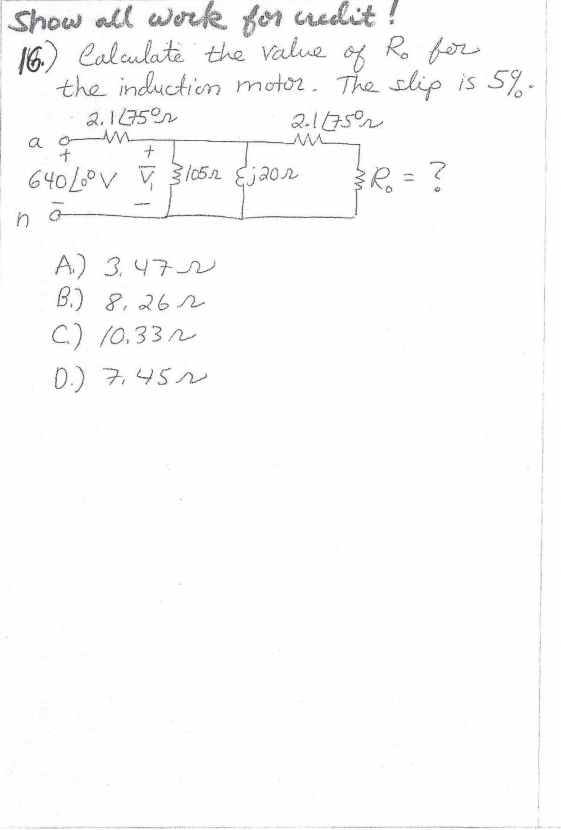 Show all work for credit!
16.) Calculate the value of Ro for
the induction motor. The slip is 5%.
2.1∠75°Ω 2.1∠75°Ω
a + +
640∠0° V V₁ 105Ω j20Ω Ro = ?
n - -
A.) 3.47Ω
B.) 8.26Ω
C.) 10.33Ω
D.) 7.45Ω